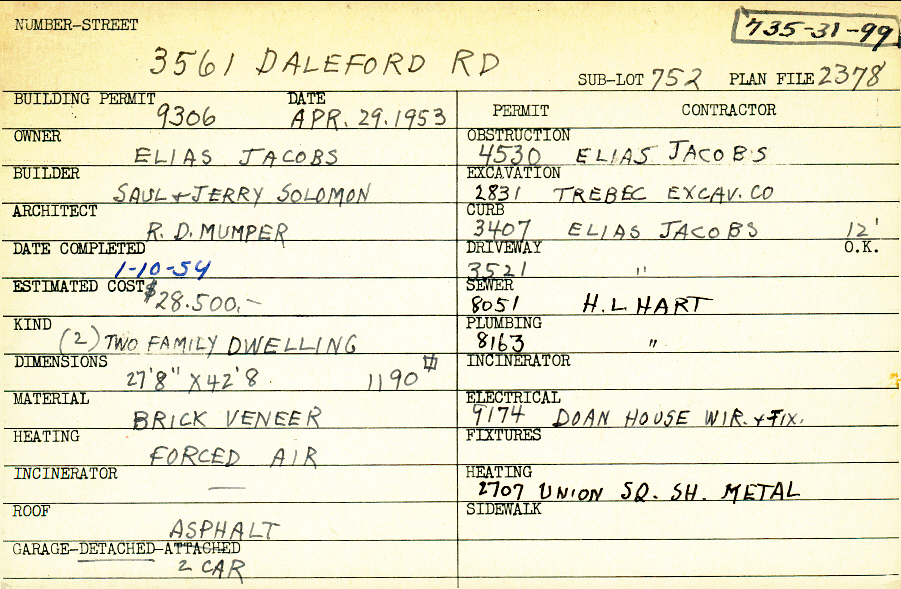 NUMBER-STREET
735-31-99
3561 DALEFORD RD
SUB-LOT 752 PLAN FILE 2378
BUILDING PERMIT DATE
9306 APR. 29.1953
OWNER
ELIAS JACOBS
BUILDER
SAUL + JERRY SOLOMON
ARCHITECT
R. D. MUMPER
DATE COMPLETED
1-10-54
ESTIMATED COST
$28.500.—
KIND
(2) TWO FAMILY DWELLING
DIMENSIONS
27'8" X 42'8. 1190 #
MATERIAL
BRICK VENEER
HEATING
FORCED AIR
INCINERATOR
—
ROOF
ASPHALT
GARAGE-DETACHED-ATTACHED
2 CAR
PERMIT CONTRACTOR
OBSTRUCTION
4530 ELIAS JACOBS
EXCAVATION
2831 TREBEC EXCAV. CO
CURB
3407 ELIAS JACOBS 12'
DRIVEWAY O.K.
3521 "
SEWER
8051 H. L. HART
PLUMBING
8163 "
INCINERATOR
ELECTRICAL
9174 DOAN HOUSE WIR. + FIX.
FIXTURES
HEATING
2707 UNION SQ. SH. METAL
SIDEWALK